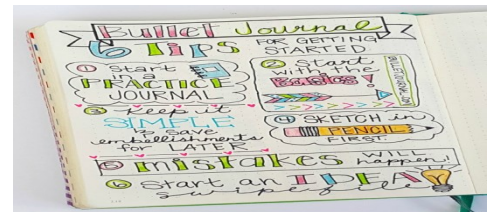 Bullet Journal
6 Tips
FOR GETTING
STARTED
① Start
in a
PRACTICE
JOURNAL
② Start
with the
Basics!
BULLETJOURNAL.COM
③ Keep it
SIMPLE
& save
embellishments
for LATER
④ SKETCH in
PENCIL
FIRST.
⑤ mistakes WILL
happen!
⑥ Start an IDEA